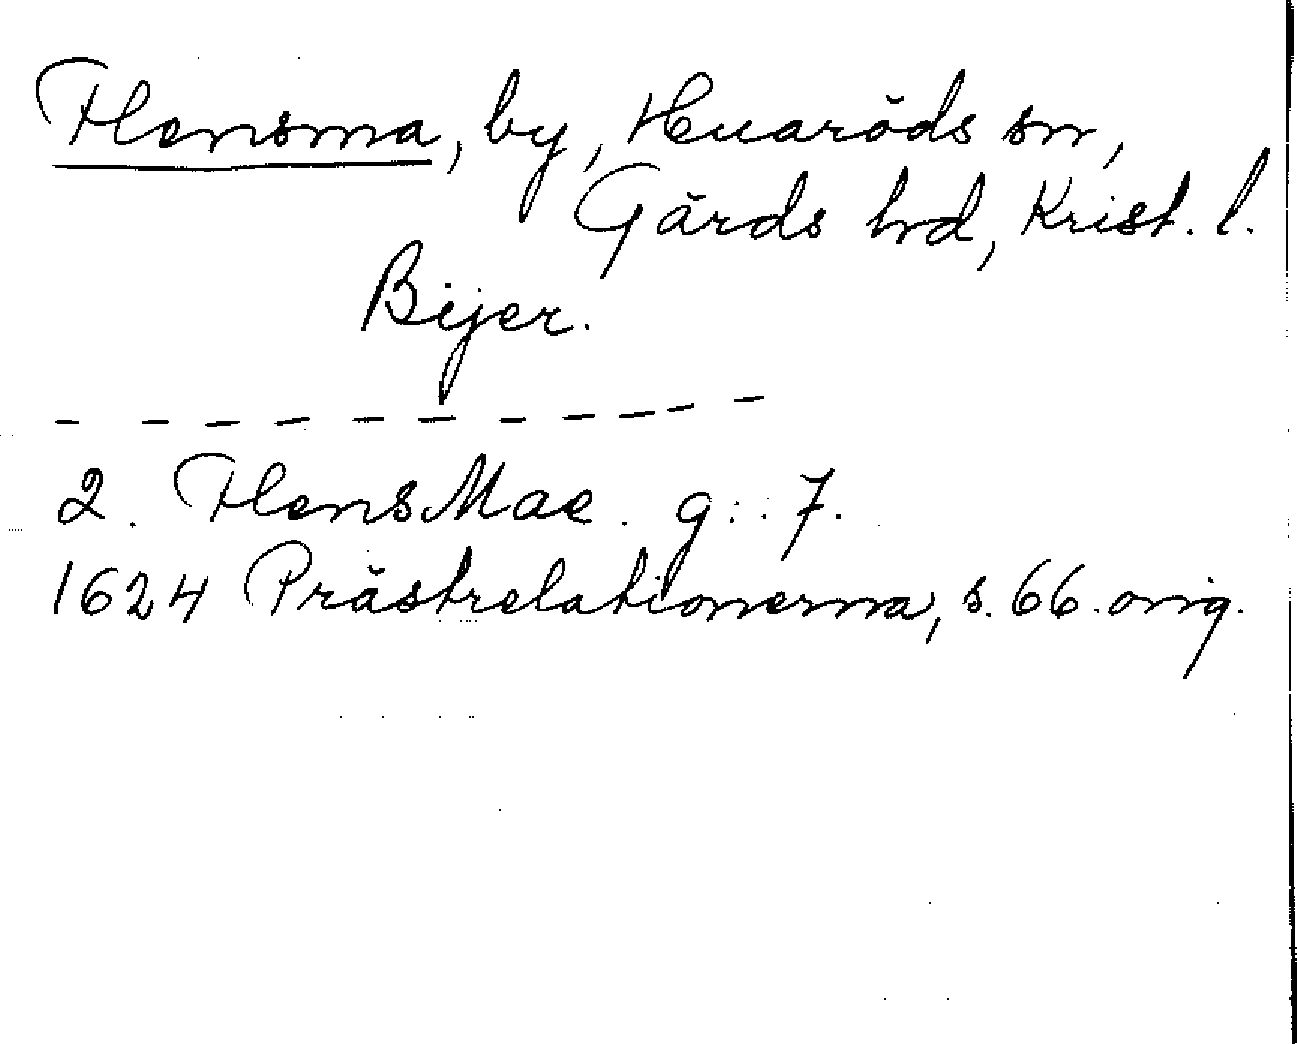 Hensma, by, Huaröds sn,
Gärds hd, Krist. l.
Bijer.
2. HensMae. g:. 7.
1624 Prästrelationerna, s. 66. orig.